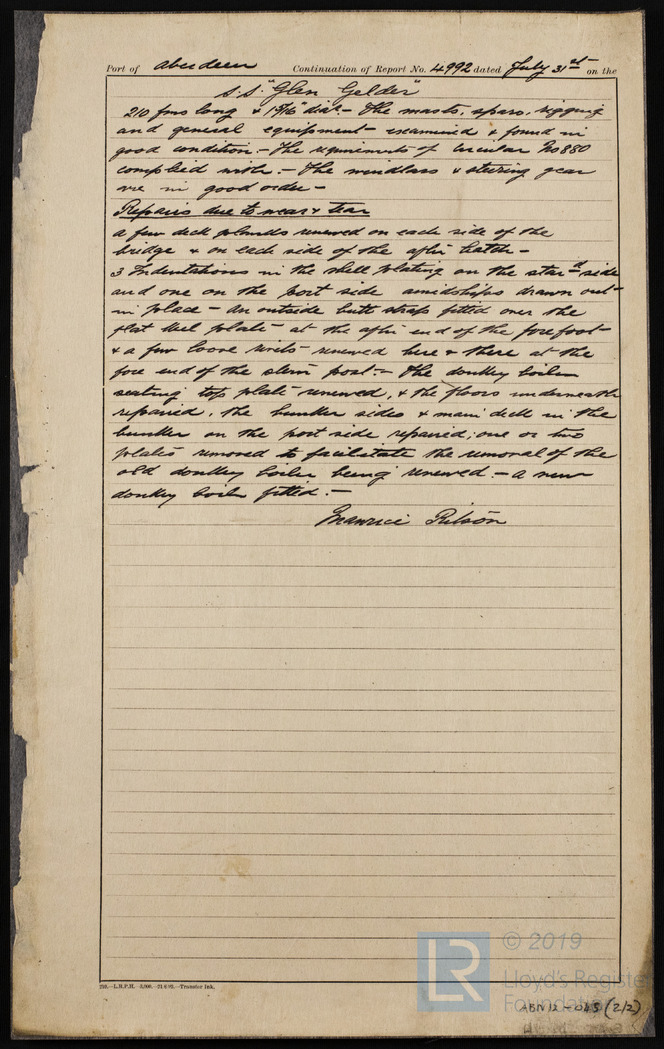 Port of Aberdeen Continuation of Report No. 4992 dated July 31st on the
S.S. "Glen Gelder"
210 fms long & 1 5/16" diar - The masts, spars, rigging
and general equipment - examined & found in
good condition - The requirements of Circular No 880
complied with. - The windlass & steering gear
are in good order -
Repairs due to wear & tear
a few deck planks renewed on each side of the
bridge & on each side of the after hatch -
3 Indentations in the shell plating on the starbd side
and one on the port side amidships drawn out
in place - An outside butt strap fitted over the
flat keel plate - at the after end of the forefoot -
& a few loose rivets renewed here & there at the
fore end of the stern post. - The donkey boiler
seating top plate renewed, & the floors underneath
repaired, the bunker sides & main deck in the
bunker on the port side repaired; one or two
plates removed to facilitate the removal of the
old donkey boiler being renewed. - a new
donkey boiler fitted. -
Maurice
210.—L.R.P.H. -Transfer Ink.
LR © 2019
Lloyd's Register
Foundation
ABN12-045 (2/2)